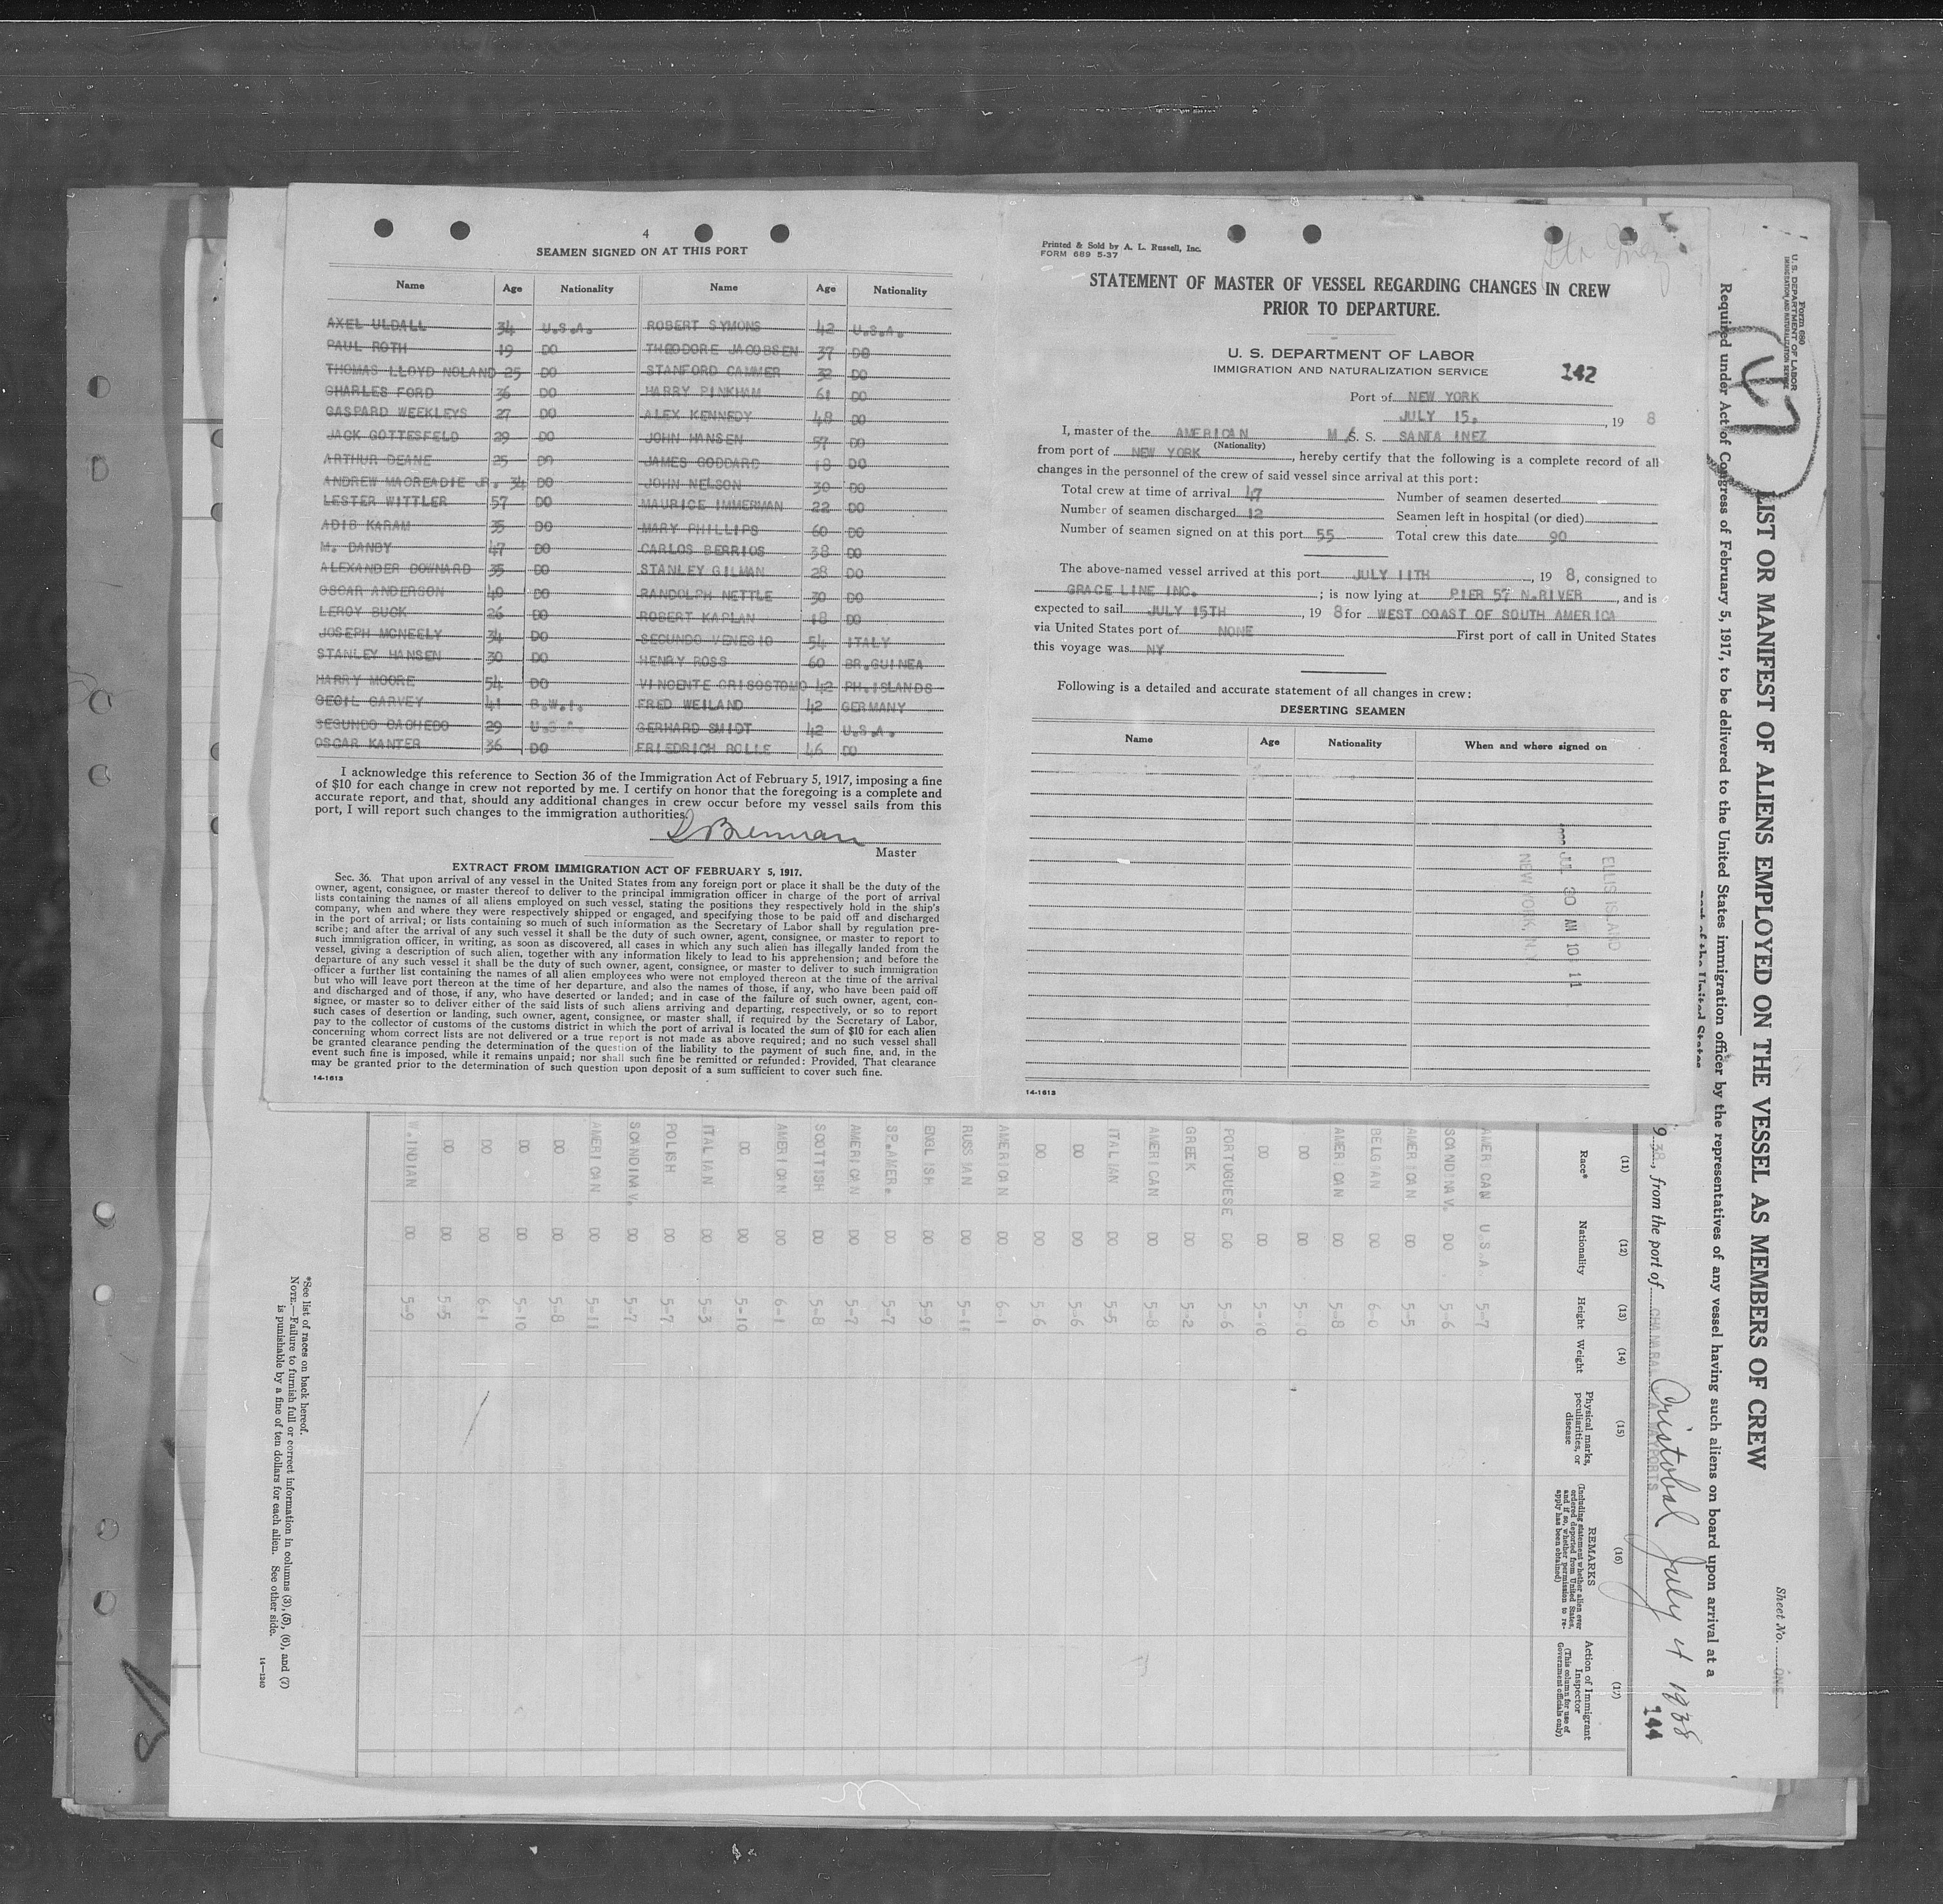 4
SEAMEN SIGNED ON AT THIS PORT
Name Age Nationality Name Age Nationality
AXEL ULDALL 34 U.S.A. ROBERT SYMONS 42 U.S.A.
PAUL ROTH 19 DO THEODORE JACOBSEN 37 DO
THOMAS LLOYD NOLAND 25 DO STANFORD CAMMER 32 DO
CHARLES FORD 36 DO HARRY PINKHAM 61 DO
GASPARD WEEKLEYS 27 DO ALEX KENNEDY 48 DO
JACK GOTTESFELD 29 DO JOHN HANSEN 57 DO
ARTHUR DEANE 25 DO JAMES GODDARD 18 DO
ANDREW MACREADIE JR. 34 DO JOHN NELSON 30 DO
LESTER WITTLER 57 DO MAURICE IMMERMAN 22 DO
ADIB KARAM 35 DO MARY PHILLIPS 60 DO
M. DANDY 47 DO CARLOS BERRIOS 38 DO
ALEXANDER DOWNARD 35 DO STANLEY GILMAN 28 DO
OSCAR ANDERSON 49 DO RANDOLPH NETTLE 30 DO
LEROY BUCK 26 DO ROBERT KAPLAN 18 DO
JOSEPH MCNEELY 34 DO SEGUNDO VENESIO 54 ITALY
STANLEY HANSEN 30 DO HENRY ROSS 60 BR.GUINEA
HARRY MOORE 54 DO VINCENTE CRISOSTOMO 42 PH.ISLANDS
CECIL GARVEY 41 B.W.I. FRED WEILAND 42 GERMANY
SEGUNDO CACHEDO 29 U.S.A. GERHARD SMIDT 42 U.S.A.
OSCAR KANTER 36 DO FRIEDRICH ROLLE 46 DO
I acknowledge this reference to Section 36 of the Immigration Act of February 5, 1917, imposing a fine
of $10 for each change in crew not reported by me. I certify on honor that the foregoing is a complete and
accurate report, and that, should any additional changes in crew occur before my vessel sails from this
port, I will report such changes to the immigration authorities.
Brennan
Master
EXTRACT FROM IMMIGRATION ACT OF FEBRUARY 5, 1917.
Sec. 36. That upon arrival of any vessel in the United States from any foreign port or place it shall be the duty of the
owner, agent, consignee, or master thereof to deliver to the principal immigration officer in charge of the port of arrival
lists containing the names of all aliens employed on such vessel, stating the positions they respectively hold in the ship's
company, when and where they were respectively shipped or engaged, and specifying those to be paid off and discharged
in the port of arrival; or lists containing so much of such information as the Secretary of Labor shall by regulation pre-
scribe; and after the arrival of any such vessel it shall be the duty of such owner, agent, consignee, or master to report to
such immigration officer, in writing, as soon as discovered, all cases in which any such alien has illegally landed from the
vessel, giving a description of such alien, together with any information likely to lead to his apprehension; and before the
departure of any such vessel it shall be the duty of such owner, agent, consignee, or master to deliver to such immigration
officer a further list containing the names of all alien employees who were not employed thereon at the time of the arrival
but who will leave port thereon at the time of her departure, and also the names of those, if any, who have been paid off
and discharged and of those, if any, who have deserted or landed; and in case of the failure of such owner, agent, con-
signee, or master so to deliver either of the said lists of such aliens arriving and departing, respectively, or so to report
such cases of desertion or landing, such owner, agent, consignee, or master shall, if required by the Secretary of Labor,
pay to the collector of customs of the customs district in which the port of arrival is located the sum of $10 for each alien
concerning whom correct lists are not delivered or a true report is not made as above required; and no such vessel shall
be granted clearance pending the determination of the question of the liability to the payment of such fine, and, in the
event such fine is imposed, while it remains unpaid; nor shall such fine be remitted or refunded: Provided, That clearance
may be granted prior to the determination of such question upon deposit of a sum sufficient to cover such fine.
14-1613
Printed & Sold by A. L. Russell, Inc.
FORM 689 5-37
STATEMENT OF MASTER OF VESSEL REGARDING CHANGES IN CREW
PRIOR TO DEPARTURE.
U. S. DEPARTMENT OF LABOR
IMMIGRATION AND NATURALIZATION SERVICE
142
Port of NEW YORK
JULY 15, , 19 8
I, master of the AMERICAN M/S. S. SANTA INEZ
(Nationality)
from port of NEW YORK , hereby certify that the following is a complete record of all
changes in the personnel of the crew of said vessel since arrival at this port:
Total crew at time of arrival 47 Number of seamen deserted
Number of seamen discharged 12 Seamen left in hospital (or died)
Number of seamen signed on at this port 55 Total crew this date 90
The above-named vessel arrived at this port JULY 11TH , 19 8, consigned to
GRACE LINE INC. ; is now lying at PIER 57 N.RIVER , and is
expected to sail JULY 15TH , 19 8 for WEST COAST OF SOUTH AMERICA
via United States port of NONE First port of call in United States
this voyage was NY
Following is a detailed and accurate statement of all changes in crew:
DESERTING SEAMEN
Name Age Nationality When and where signed on
ELLIS ISLAND
JUL 30 AM 10 11
NEW YORK, N.Y.
14-1613
Form 680
U. S. DEPARTMENT OF LABOR
IMMIGRATION AND NATURALIZATION SERVICE
Sheet No. ONE
LIST OR MANIFEST OF ALIENS EMPLOYED ON THE VESSEL AS MEMBERS OF CREW
Required under Act of Congress of February 5, 1917, to be delivered to the United States immigration officer by the representatives of any vessel having such aliens on board upon arrival at a
port of the United States
938, from the port of Cristobal July 4 1938
144
(11) (12) (13) (14) (15) (16) (17)
Race* Nationality Height Weight Physical marks, peculiarities, or disease REMARKS (Including statement whether alien ever ordered deported from United States, and if so, whether permission to re-apply has been obtained) Action of Immigrant Inspector (This column for use of Government officials only)
AMERICAN U.S.A. 5-7
SCNDINAV. DO 5-6
AMERICAN DO 5-5
BELGIAN DO 6-0
AMERICAN DO 5-8
DO DO 5-10
DO DO 5-10
PORTUGUESE DO 5-6
GREEK DO 5-2
AMERICAN DO 5-8
ITALIAN DO 5-5
DO DO 5-6
DO DO 5-6
AMERICAN DO 6-1
RUSSIAN DO 5-11
ENGLISH DO 5-9
SP.AMER. DO 5-7
AMERICAN DO 5-7
SCOTTISH DO 5-8
AMERICAN DO 6-1
DO DO 5-10
ITALIAN DO 5-3
POLISH DO 5-7
SCNDINAV. DO 5-7
AMERICAN DO 5-11
DO DO 5-8
DO DO 5-10
DO DO 6-1
DO DO 5-5
W.INDIAN DO 5-9
*See list of races on back hereof.
NOTE.—Failure to furnish full or correct information in columns (3), (5), (6), and (7)
is punishable by a fine of ten dollars for each alien. See other side.
14—1240